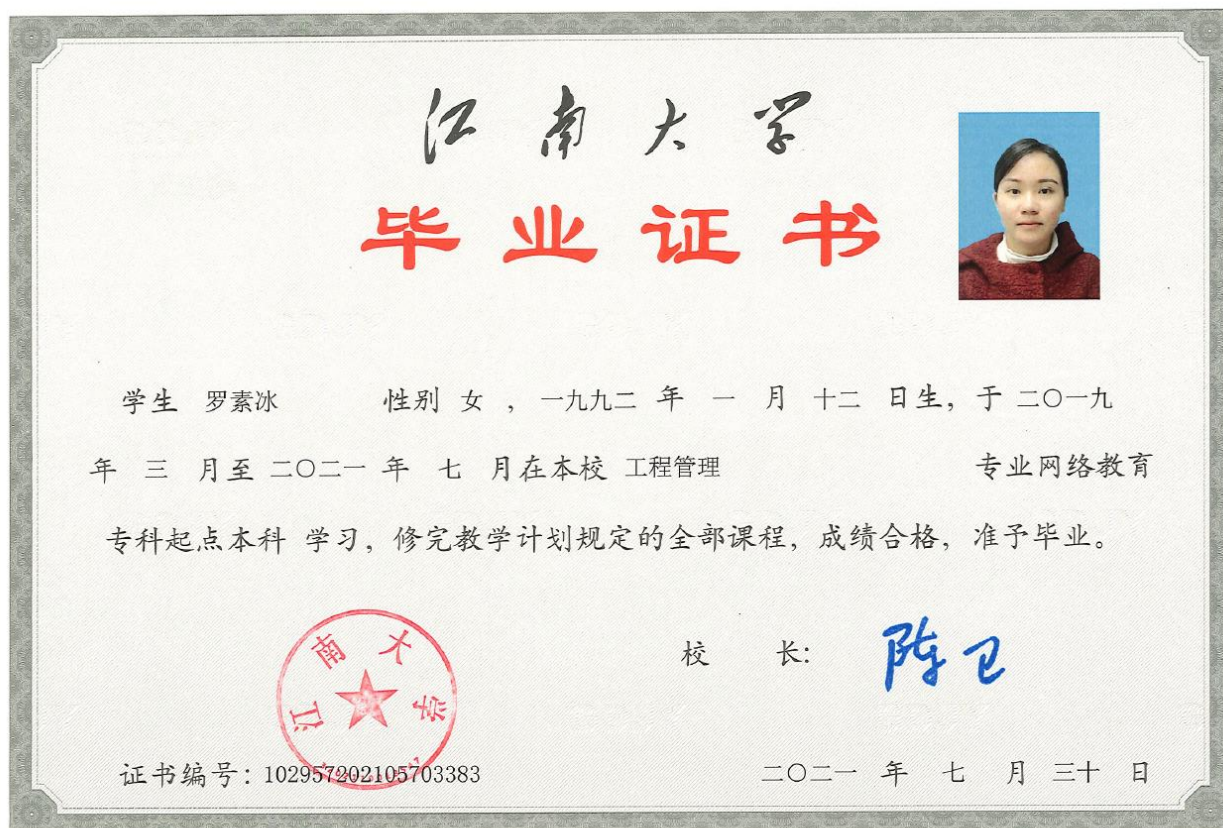 江南大学
毕业证书
学生 罗素冰 性别 女 ，一九九二 年 一 月 十二 日生，于 二〇一九
年 三 月至 二〇二一 年 七 月在本校 工程管理 专业网络教育
专科起点本科 学习，修完教学计划规定的全部课程，成绩合格，准予毕业。
江南大学
校 长: 陈卫
证书编号: 102957202105703383
二〇二一 年 七 月 三十 日